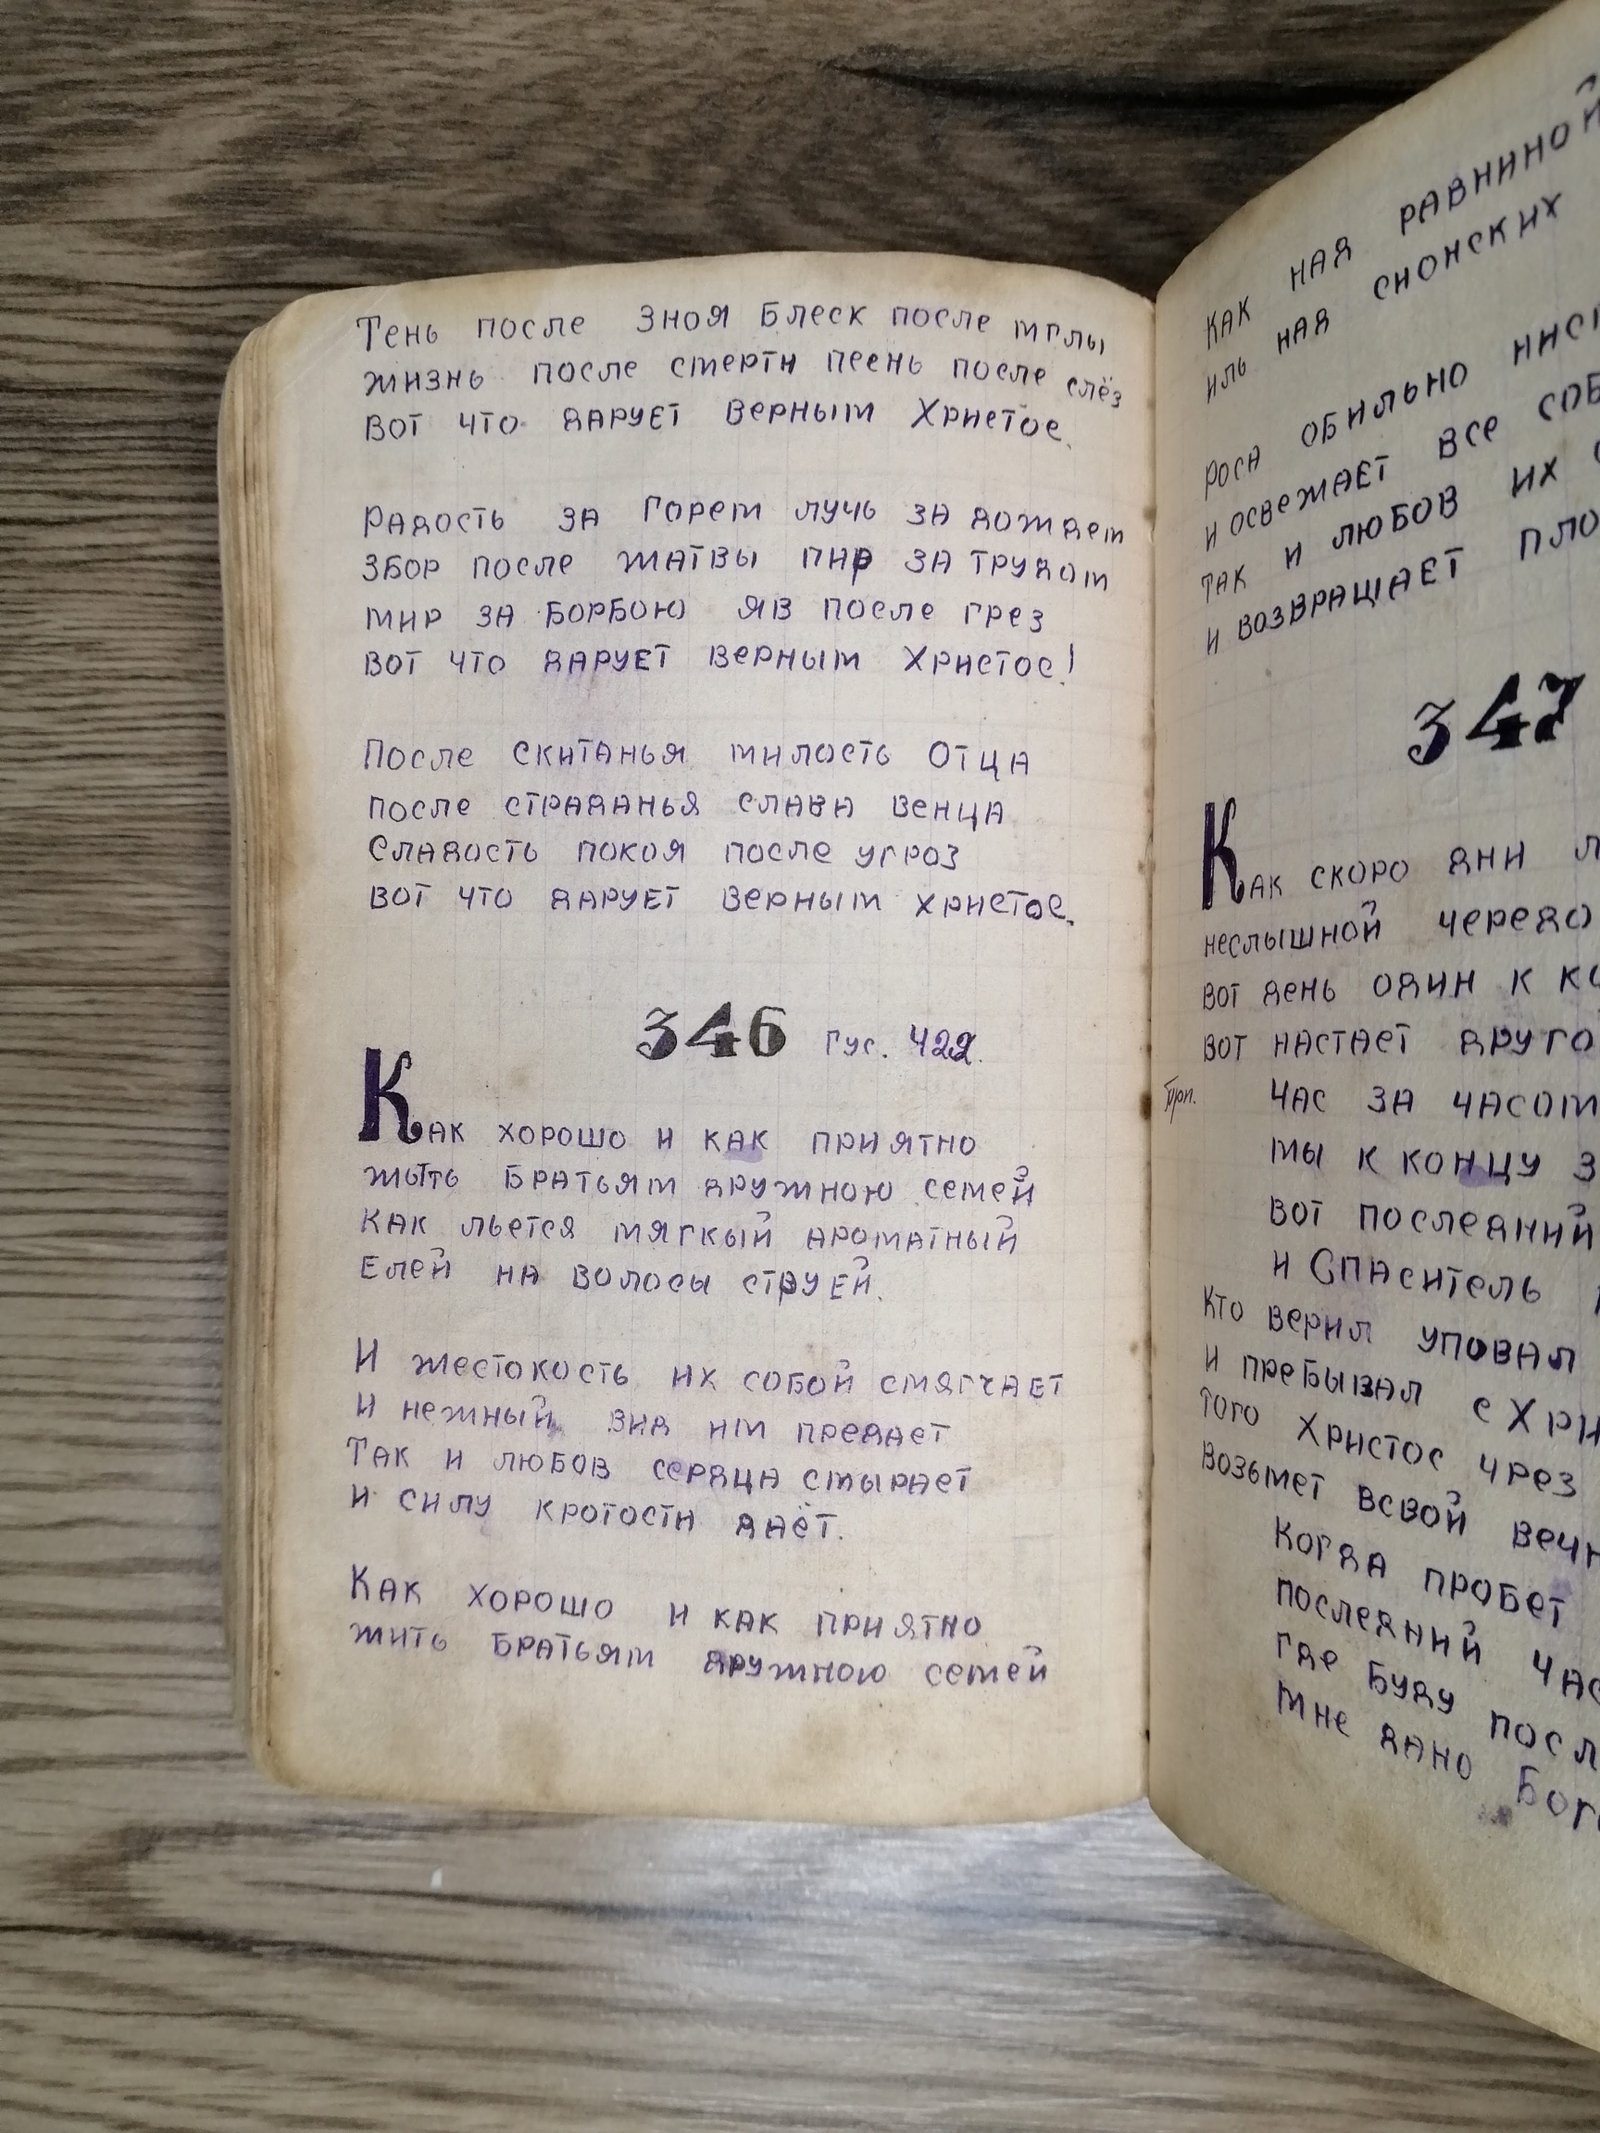 Тень после Зноя Блеск после мглы
жизнь после смерти песнь после слёз
вот что дарует верным Христос.
Радость за горем лучь за дождем
збор после жатвы пир за трудом
мир за борбою яв после грез
вот что дарует верным Христос!
После скитанья милость Отца
после страданья слава венца
Сладость покоя после угроз
вот что дарует верным христос.
346 Гус. 422.
Как хорошо и как приятно
жыть братьям дружною семей
как льется мягкый ароматный
Елей на волосы струей.
И жестокость их собой смягчает
и нежный вид им предает
Так и любов сердца смырает
и силу кротости даёт.
Как хорошо и как приятно
жить братьям дружною семей
как ная равниной
иль ная сионских
роса обильно
и освежает все
так и любов их
и возвращает
347
Как скоро дни
неслышной
вот день один к
вот настает
Прп. Час за часом
мы к концу
вот последний
и Спаситель
Кто верил уповал
и пребывал с
того Христос чрез
возьмет всвой
Когда пробет
последний
где буду
мне дано